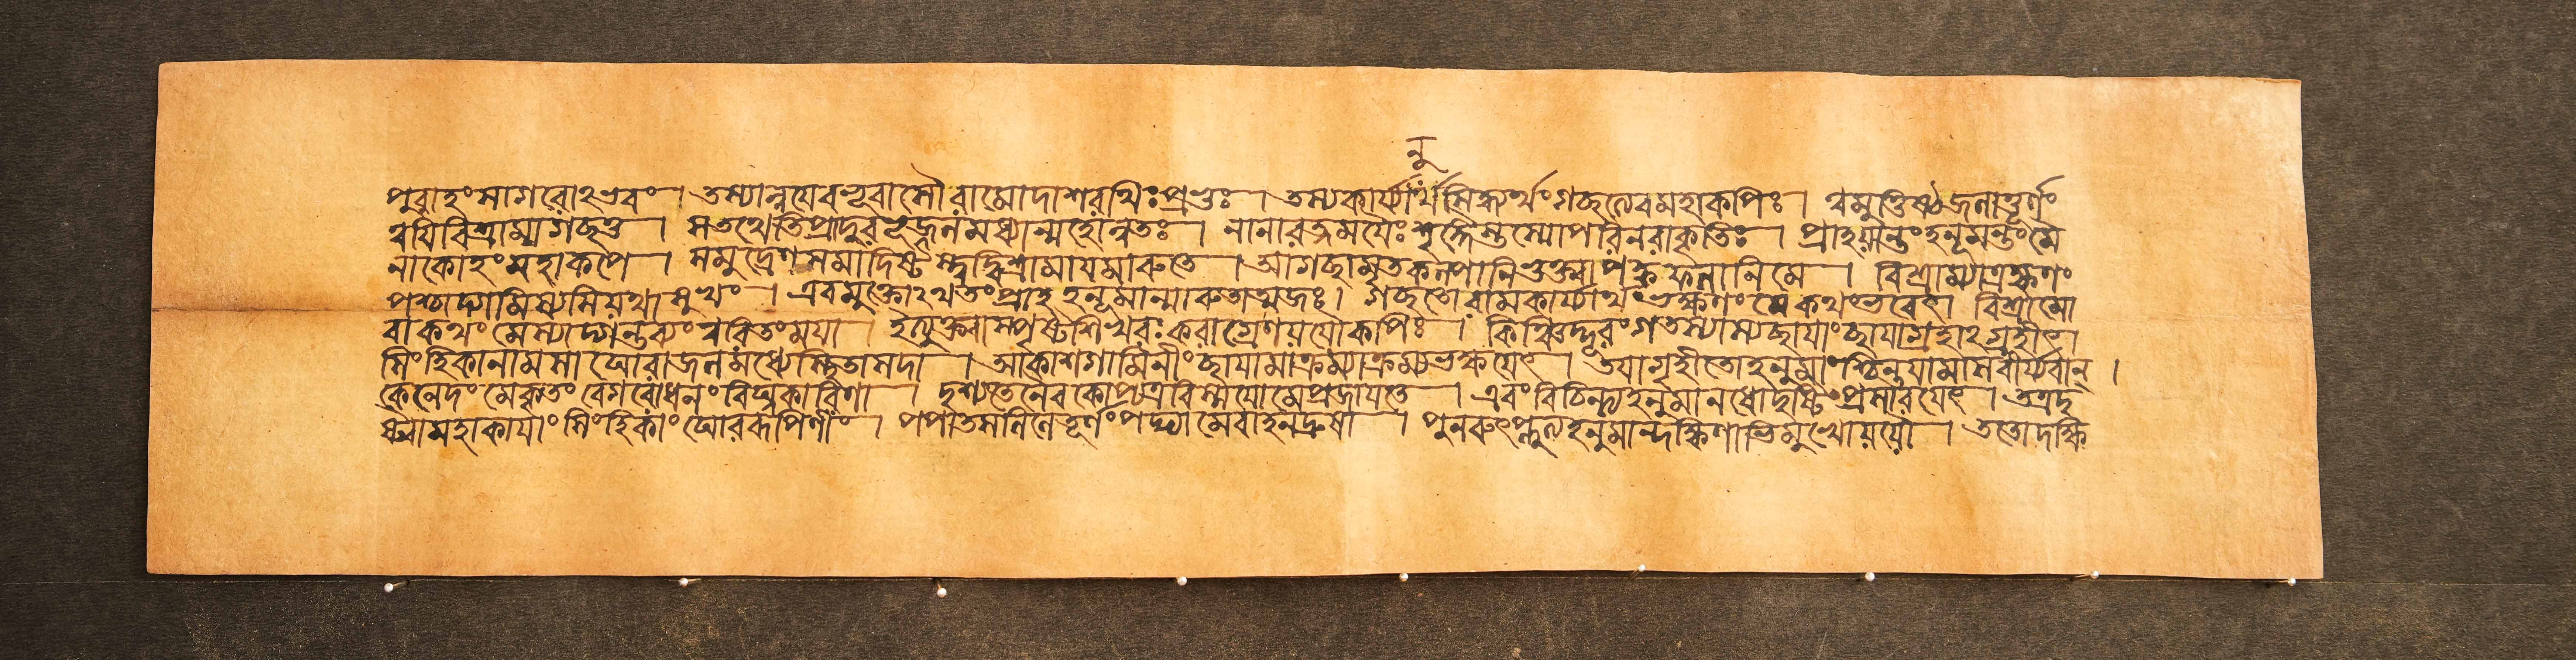 পুরাহং সাগরোঽভবং । তস্যান্বযে বভূবাসৌ রামো দাশরথিঃ প্রভুঃ । তস্য কার্য্যার্থসিদ্ধ্যর্থং গচ্ছত্যেব মহাকপিঃ । ত্বমুত্তিষ্ঠ জলাত্তূর্ণং
ত্বযি বিশ্রাম্য গচ্ছতু । স তথেতি প্রাদুরভূজ্জলমধ্যান্মহোন্নতঃ । নানারত্নমযৈঃ শৃঙ্গৈস্তস্যোপরি নরাকৃতিঃ । প্রাহ যান্তং হনূমন্তং মৈ
নাকোহং মহাকপে । সমুদ্রেণ সমাদিষ্টস্ত্বদ্বিশ্রামায মারুতে । আগচ্ছামৃতকল্পানি ভুক্ত্বা পক্বফলানি মে । বিশ্রাম্যাত্র ক্ষণং
পশ্চাদ্গমিষ্যসি যথাসুখং । এবমুক্তোঽথ তং প্রাহ হনূমান্মারুতাত্মজঃ । গচ্ছতো রামকার্য্যার্থং ভক্ষণং মে কথং ভবেৎ । বিশ্রামো
বা কথং মে স্যাদ্গন্তব্যং ত্বরিতং মযা । ইত্যুক্ত্বা স্পৃষ্টশিখরঃ করাগ্রেণ যযৌ কপিঃ । কিঞ্চিদ্দূরং গতস্যাস্য ছাযাং ছাযাগ্রহাঽগ্রহীৎ ।
সিংহিকা নাম সা ঘোরা জলমধ্যে স্থিতা সদা । আকাশগামিনীং ছাযামাক্রম্যাক্রম্য ভক্ষযেৎ । তযা গৃহীতো হনুমাংশ্চিন্তযামাস বীর্য্যবান্ ।
কেনেদং মে কৃতং বেগরোধনং বিঘ্নকারিণা । দৃশ্যতে নৈব কোপ্যত্র বিস্মযো মে প্রজাযতে । এবং বিচিন্ত্য হনুমানধো দৃষ্টিং প্রসারযেৎ । তত্র দৃ
ষ্ট্বা মহাকাযাং সিংহিকাং ঘোররূপিণীং । পপাত সলিলে তূর্ণং পদ্ভ্যামেবাহনদ্রুষা । পুনরুৎপ্লুত্য হনুমান্দক্ষিণাভিমুখো যযৌ । ততো দক্ষি